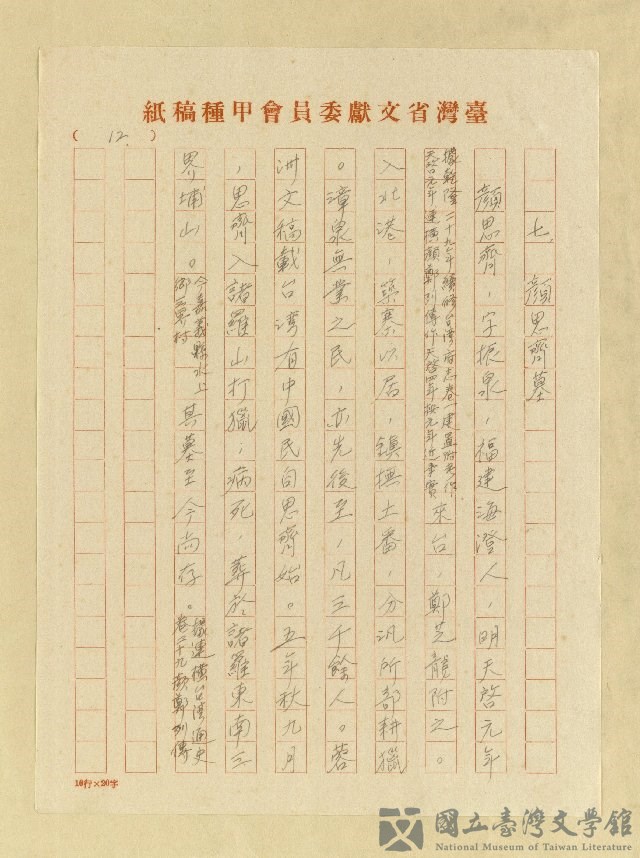 臺灣省文獻委員會甲種稿紙
( 12. )
七、顏思齊墓
顏思齊，字振泉，福建海澄人，明天啓元年
據乾隆二十九年續修台灣府志卷一建置附考作
天啓元年連橫顏鄭列傳作天啓四年按元年近事實
來台，鄭芝龍附之。
入北港，築寨以居，鎮撫土番，分汛所部耕獵
。漳泉無業之民，亦先後至，凡三千餘人。蓉
洲文稿載台湾有中國民自思齊始。五年秋九月
，思齊入諸羅山打獵，病死，葬於諸羅東南三
界埔山。
今嘉義縣水上
鄉三界村
其墓至今尚存。
據連橫台湾通史
卷二十九顏鄭列傳
10行×20字
國立臺灣文學館
National Museum of Taiwan Literature